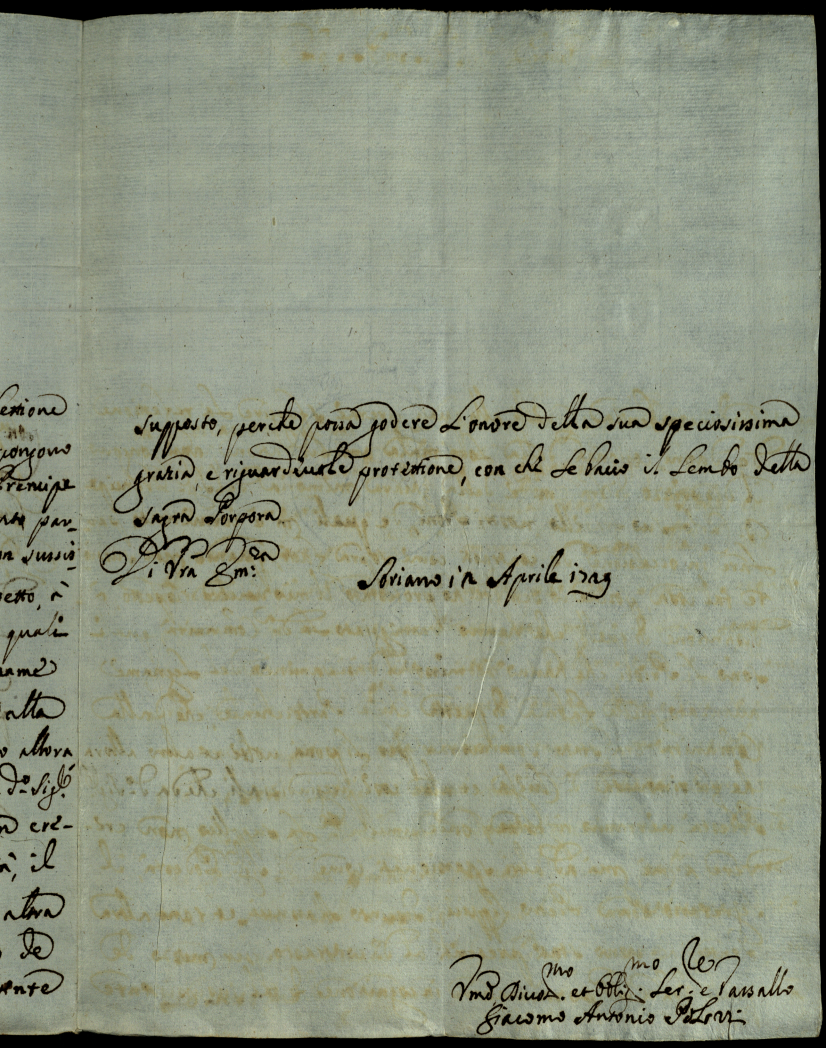 lezione
pongono
Prencipe
nto par-
in sussis-
petto, è
quali
name
alta
o allora
d.o Sig.
cre-
, il
altra
de
ente
supposto, perche possa godere l'onore della sua speciosissima
grazia, e riguardevole protezione, con che le bacio il lembo della
sagra Porpora.
Di Vra Em.za
Soriano in Aprile 1729
Vmo, Divot.mo et Obblig.mo Ser.re e Vassallo
Giacomo Antonio